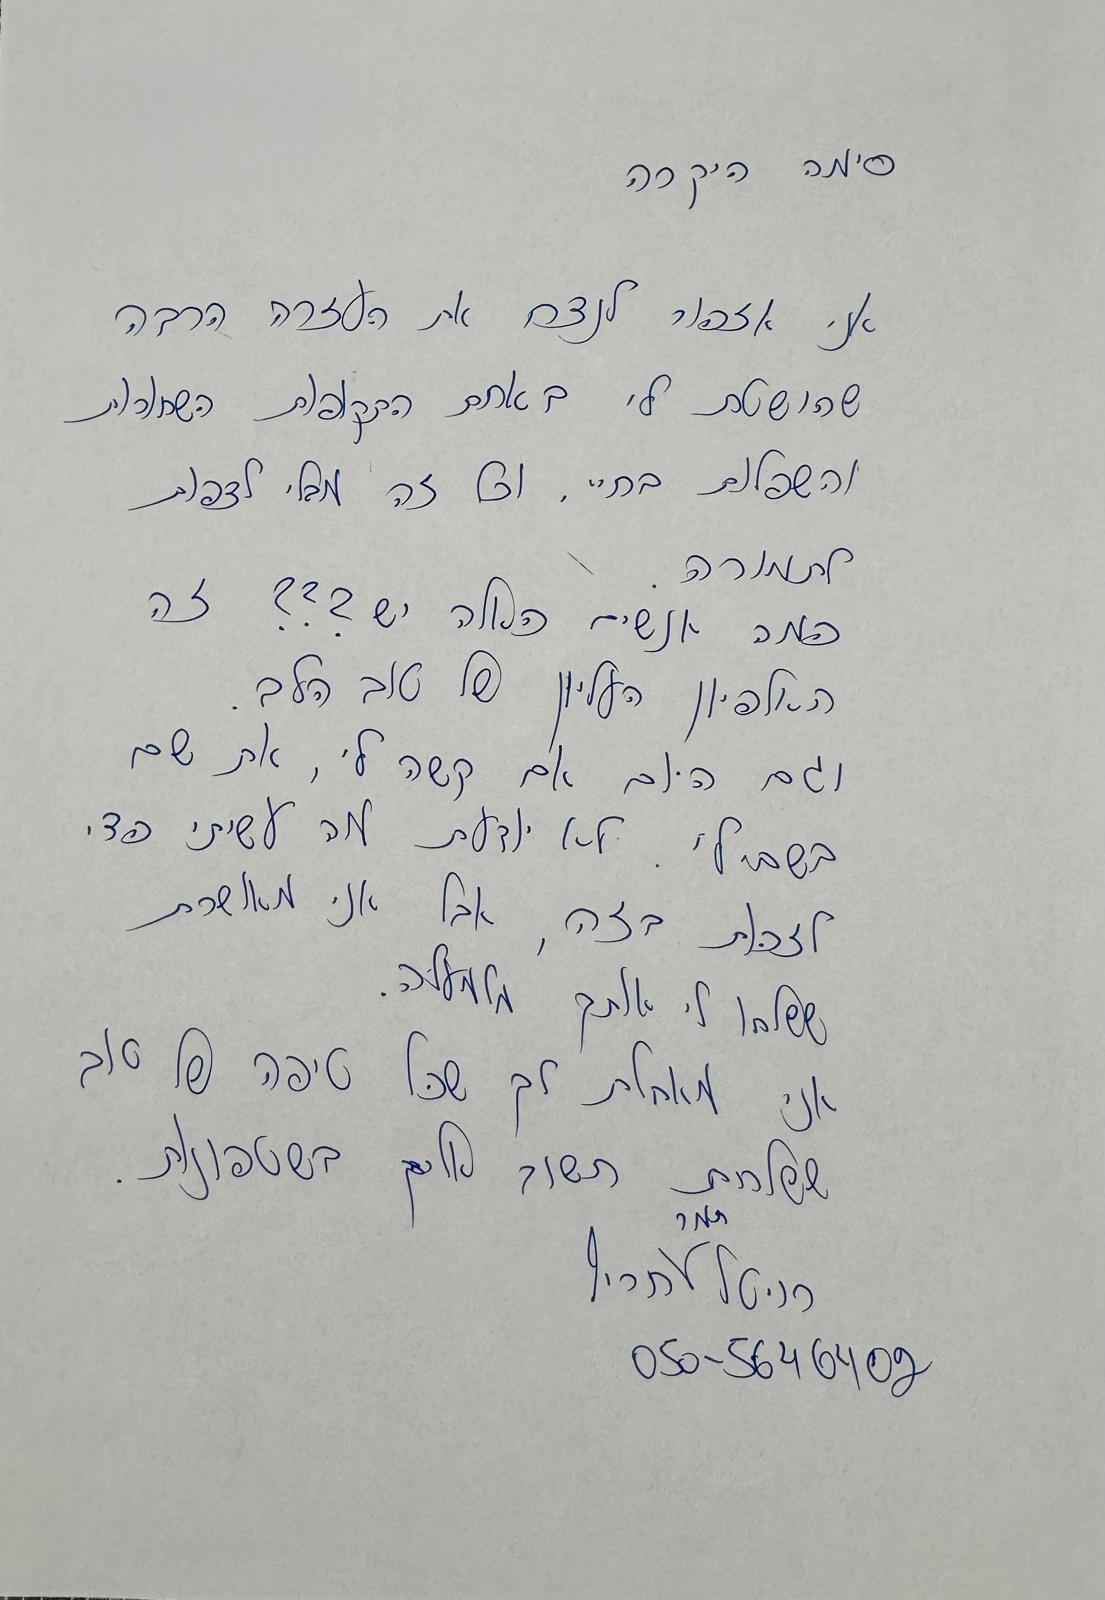 סימה היקרה
אני אזכור לנצח את העזרה הרבה
שהושטת לי באחת התקופות השחורות
והשפלות בחיי. וכל זה מבלי לצפות
לתמורה.
כמה אנשים כאלה יש??? זה
האלפיון העליון של טוב הלב.
וגם היום אם קשה לי, את שם
בשבילי. לא יודעת מה עשיתי כדי
לזכות בזה, אבל אני מאושרת
ששלחו לי אותך מלמעלה.
אני מאחלת לך שכל טיפה של טוב
ששלחת תשוב אליך בשטפונות.
תמר
רויטל
050-5646402